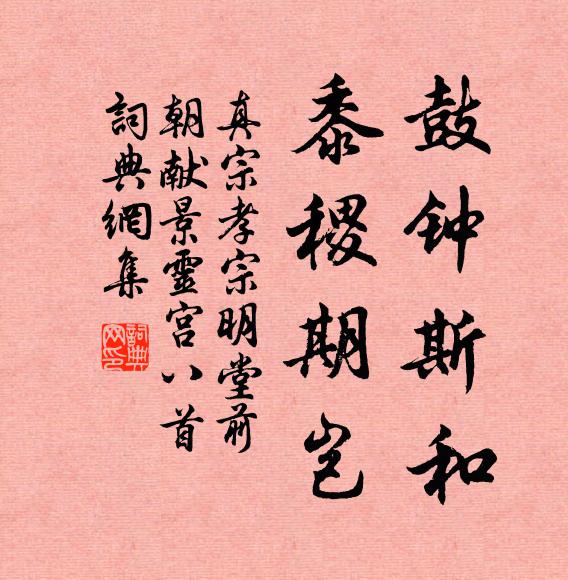 鼓钟斯和
黍稷期岂
真宗孝宗明堂前
朝献景靈宫八首
詞典網集
詞典网印